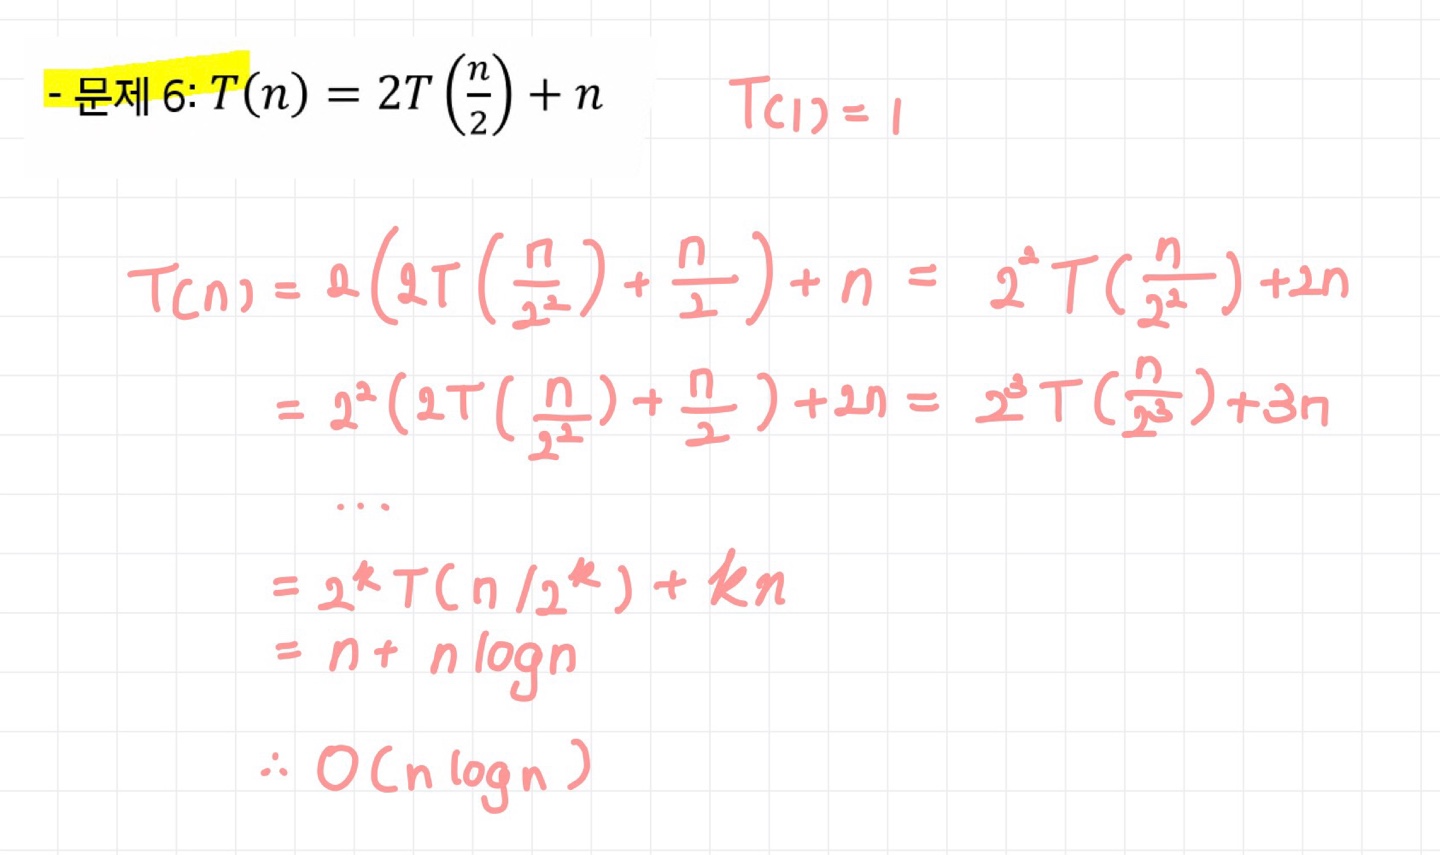 - 문제 6: T(n) = 2T(n/2) + n
T(1) = 1
T(n) = 2(2T(n/2²) + n/2) + n = 2²T(n/2²) + 2n
= 2²(2T(n/2²) + n/2) + 2n = 2³T(n/2³) + 3n
...
= 2^k T(n/2^k) + kn
= n + n log n
∴ O(n log n)